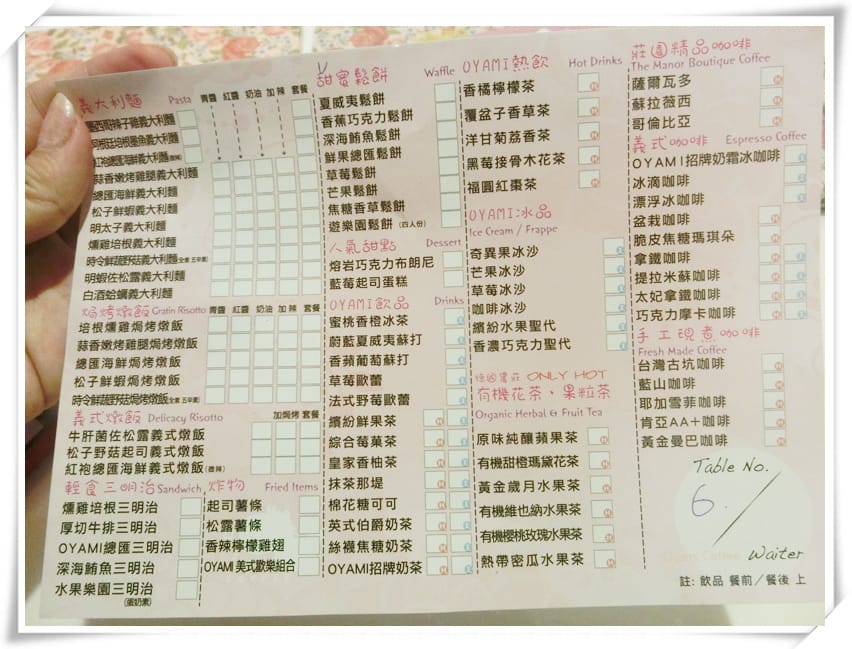 義大利麵 Pasta 青醬 紅醬 奶油 加辣 套餐
墨西哥辣子雞義大利麵
阿根廷培根墨魚義大利麵
紅袍總匯海鮮義大利麵(微辣)
蒜香嫩烤雞腿義大利麵
總匯海鮮義大利麵
松子鮮蝦義大利麵
明太子義大利麵
燻雞培根義大利麵
時令鮮蔬野菇義大利麵(全素 五辛素)
明蝦佐松露義大利麵
白酒蛤蠣義大利麵
焗烤燉飯 Gratin Risotto 青醬 紅醬 奶油 加辣 套餐
培根燻雞焗烤燉飯
蒜香嫩烤雞腿焗烤燉飯
總匯海鮮焗烤燉飯
松子鮮蝦焗烤燉飯
時令鮮蔬野菇焗烤燉飯(全素 五辛素)
義式燉飯 Delicacy Risotto 加焗烤 套餐
牛肝菌佐松露義式燉飯
松子野菇起司義式燉飯
紅袍總匯海鮮義式燉飯(微辣)
輕食三明治 Sandwich
燻雞培根三明治
厚切牛排三明治
OYAMI總匯三明治
深海鮪魚三明治
水果樂園三明治
(蛋奶素)
炸物 Fried Items
起司薯條
松露薯條
香辣檸檬雞翅
OYAMI 美式歡樂組合
甜蜜鬆餅 Waffle
夏威夷鬆餅
香蕉巧克力鬆餅
深海鮪魚鬆餅
鮮果總匯鬆餅
草莓鬆餅
芒果鬆餅
焦糖香草鬆餅
遊樂園鬆餅 (四人份)
人氣甜點 Dessert
熔岩巧克力布朗尼
藍莓起司蛋糕
OYAMI飲品 Drinks
蜜桃香橙冰茶
蔚藍夏威夷蘇打
香蘋葡萄蘇打
草莓歐蕾
法式野莓歐蕾
繽紛鮮果茶
綜合莓菓茶
皇家香柚茶
抹茶那堤
棉花糖可可
英式伯爵奶茶
絲襪焦糖奶茶
OYAMI招牌奶茶
OYAMI熱飲 Hot Drinks
香橘檸檬茶
覆盆子香草茶
洋甘菊荔香茶
黑莓接骨木花茶
福圓紅棗茶
OYAMI冰品
Ice Cream / Frappe
奇異果冰沙
芒果冰沙
草莓冰沙
咖啡冰沙
繽紛水果聖代
香濃巧克力聖代
德國農莊 ONLY HOT
有機花茶、果粒茶
Organic Herbal & Fruit Tea
原味純釀蘋果茶
有機甜橙瑪黛花茶
黃金歲月水果茶
有機維也納水果茶
有機櫻桃玫瑰水果茶
熱帶密瓜水果茶
莊園精品咖啡
The Manor Boutique Coffee
薩爾瓦多
蘇拉薇西
哥倫比亞
義式咖啡 Espresso Coffee
OYAMI招牌奶霜冰咖啡
冰滴咖啡
漂浮冰咖啡
盆栽咖啡
脆皮焦糖瑪琪朵
拿鐵咖啡
提拉米蘇咖啡
太妃拿鐵咖啡
巧克力摩卡咖啡
手工現煮咖啡
Fresh Made Coffee
台灣古坑咖啡
藍山咖啡
耶加雪菲咖啡
肯亞AA+咖啡
黃金曼巴咖啡
Table No.
6
Waiter
註: 飲品 餐前/餐後 上